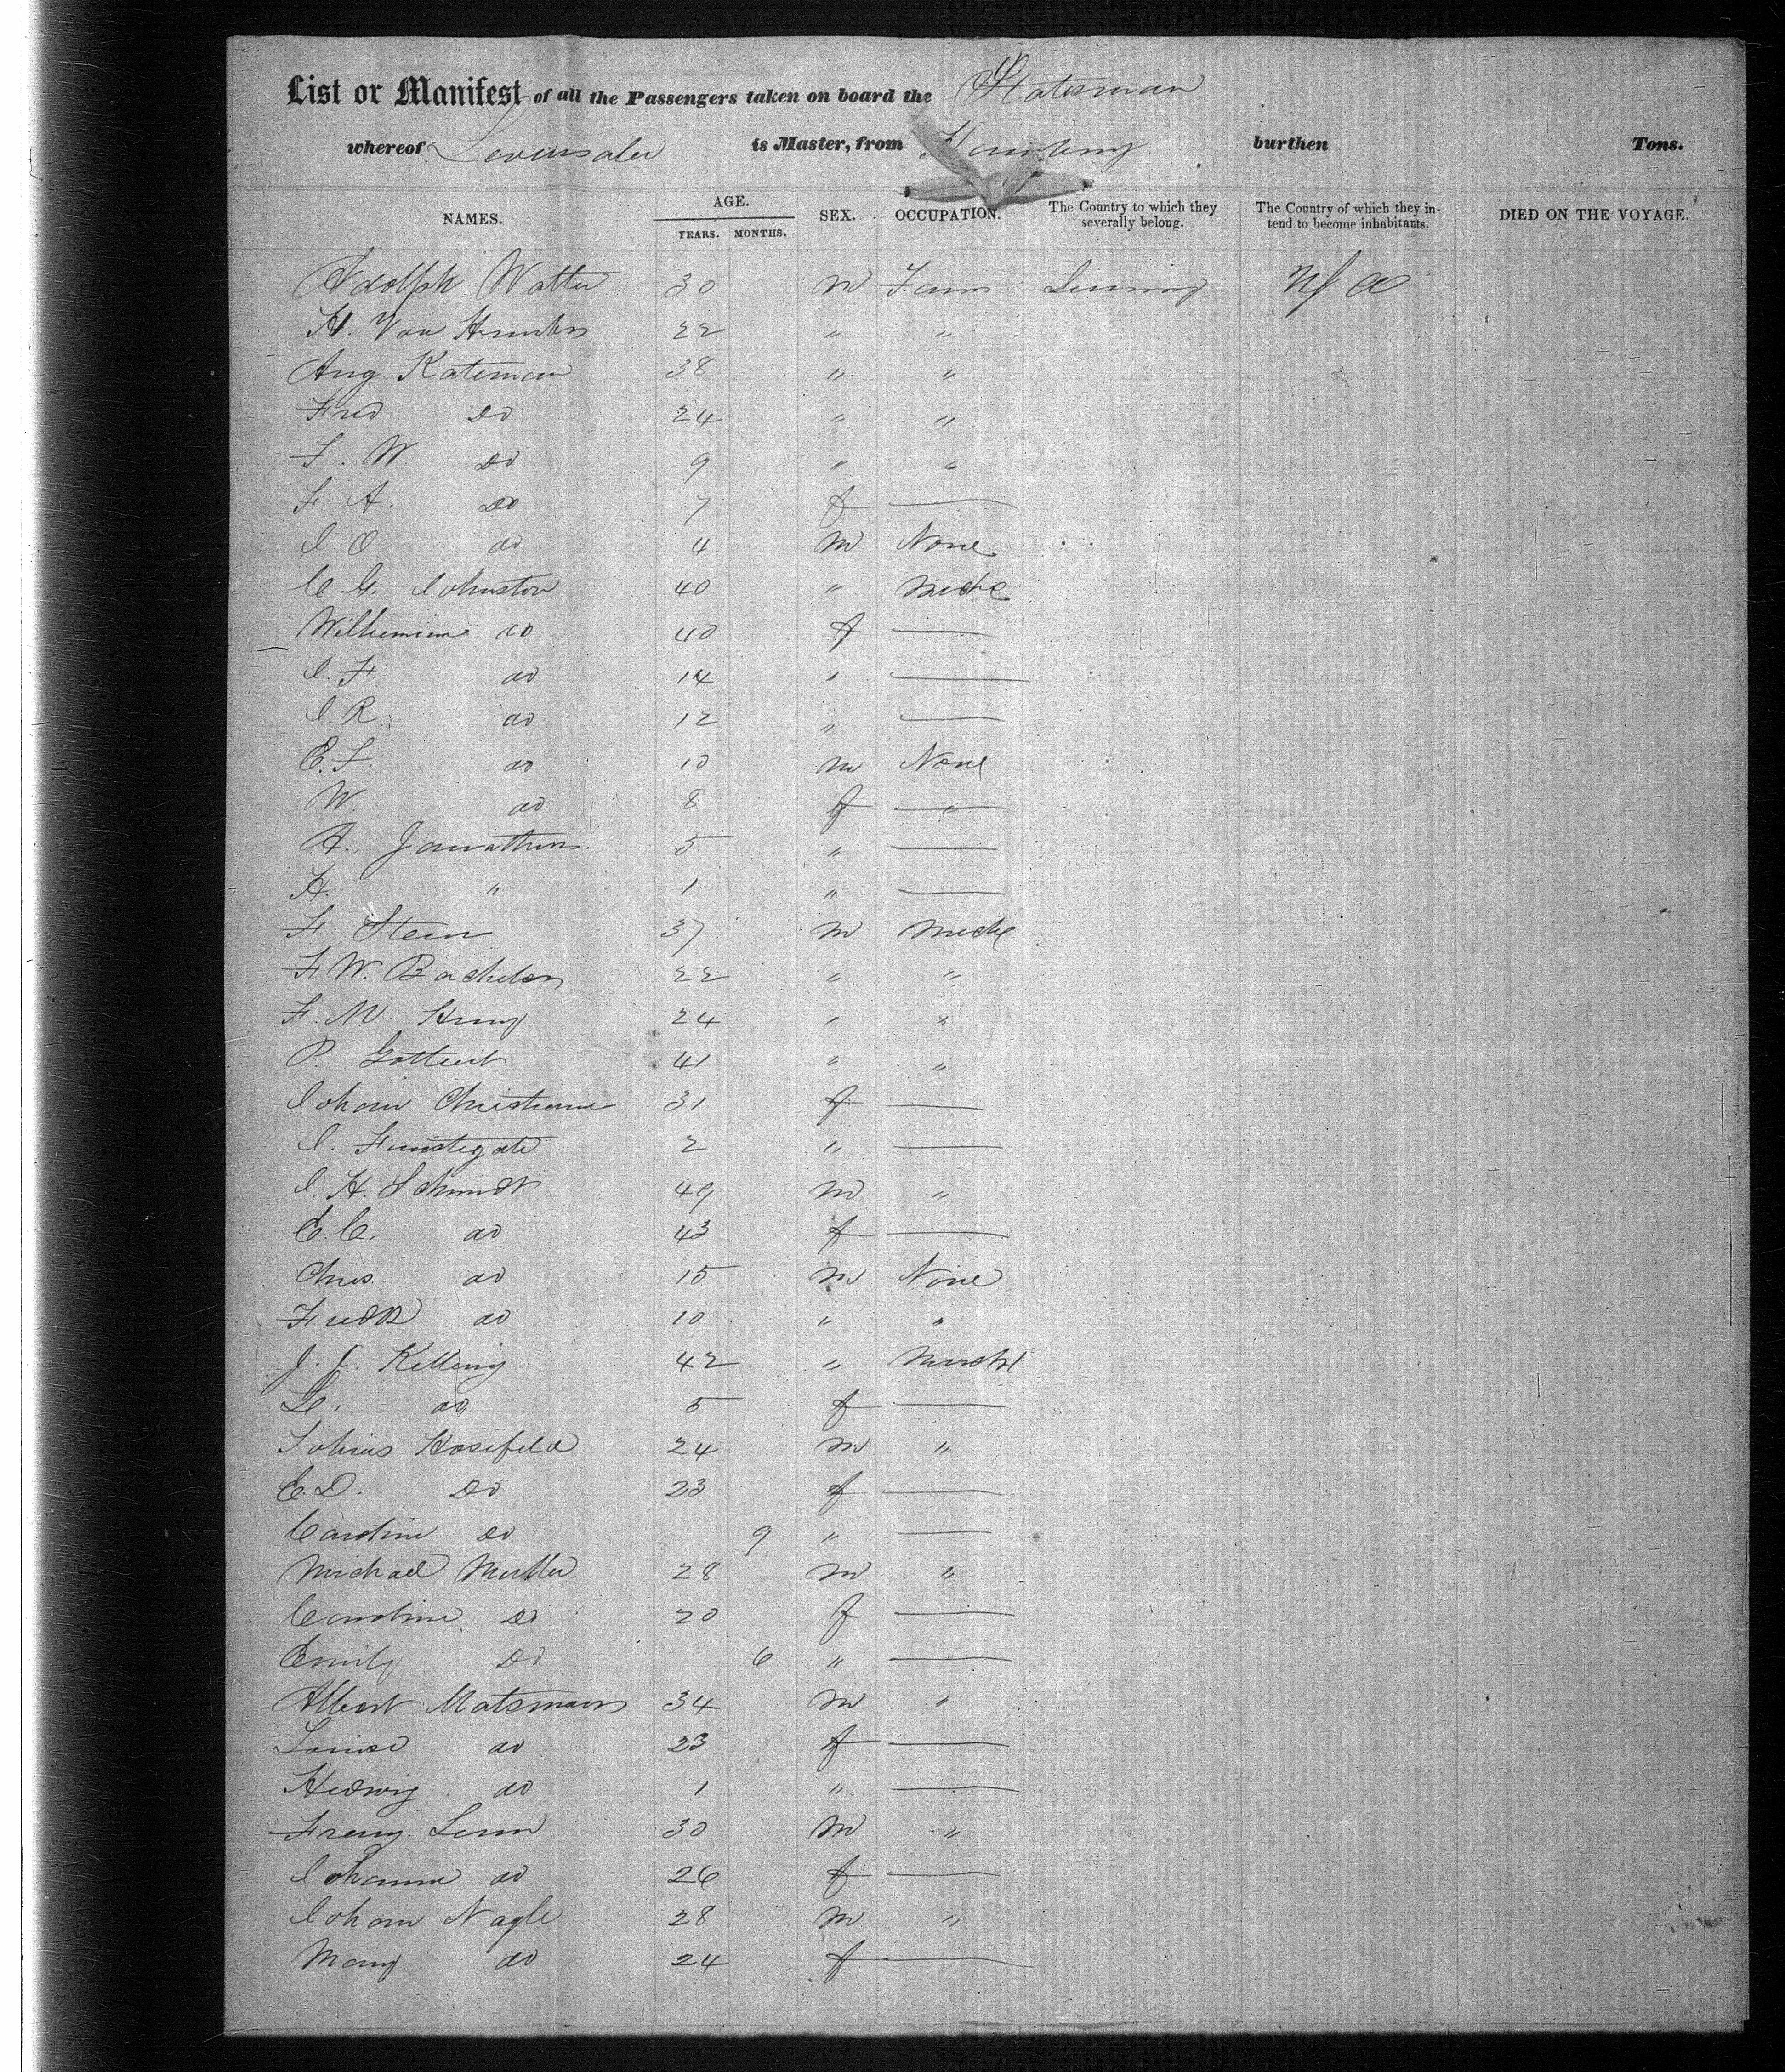 List or Manifest of all the Passengers taken on board the Statesman
whereof Levensaler is Master, from Hamburg burthen Tons.
NAMES. AGE. SEX. OCCUPATION. The Country to which they severally belong. The Country of which they intend to become inhabitants. DIED ON THE VOYAGE.
YEARS. MONTHS.
Adolph Walter 30 m Farm
H. Von 22 " "
Aug. Kateman 38 " "
Fred Do 24 " "
F. W. Do 9 " "
F A. Do 7 f —
I O do 4 m None
C G. Johnston 40 " Mechc
do 40 f —
I. F. do 14 " —
I. R. do 12 " —
E. F. do 10 m None
W. do 8 f "
A. 5 " —
H. " 1 " —
F Stein 37 m Mechc
F. W. 22 " "
F. W. 24 " "
P. 41 " "
Johann Christiane 31 f —
I. 2 " —
I. H. Schmidt 49 m "
E. C. do 43 f —
Chas do 15 m None
Fredk do 10 " "
J. C. Kelling 42 "
do 5 f —
24 m "
E. D. Do 23 f —
Caroline Do 9 " —
Michael 28 m "
Caroline Do 20 f —
Emily Do 6 " —
Albert Matsmann 34 m "
Louise do 23 f —
Hedwig do 1 " —
Franz 30 m "
Johanna do 26 f —
Johann Nagle 28 m "
Mary do 24 f —